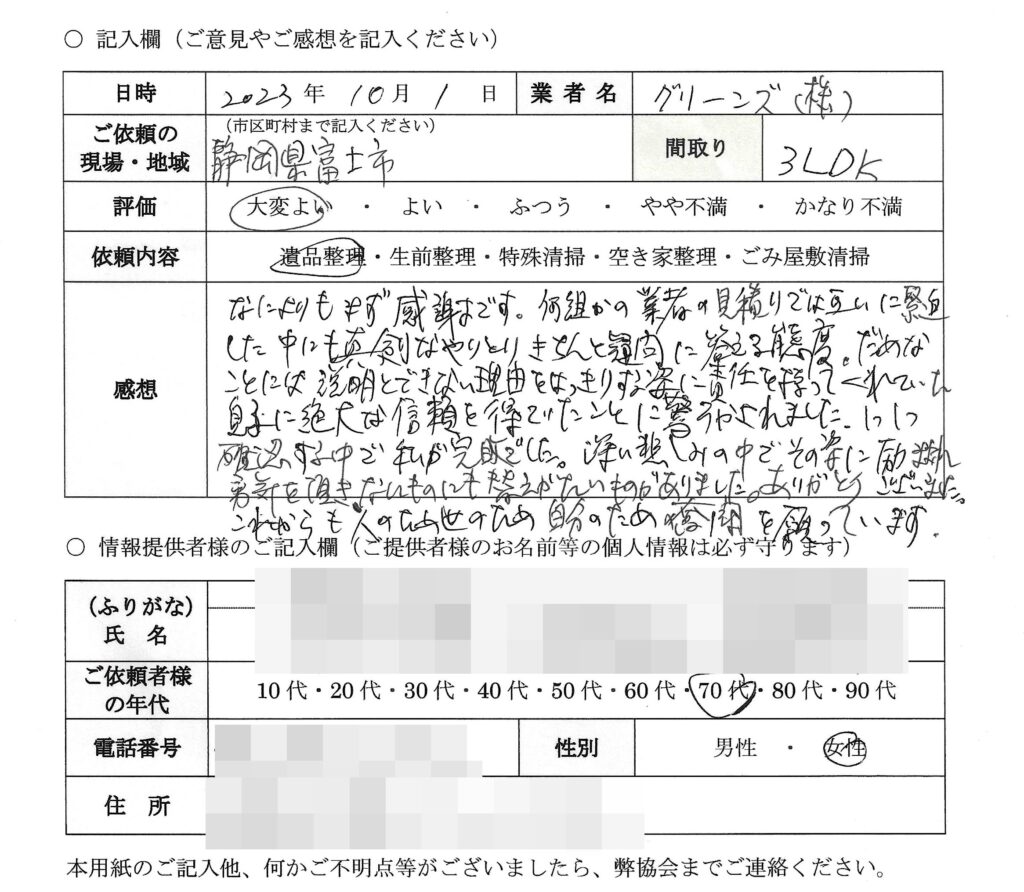 ○ 記入欄（ご意見やご感想を記入ください）
日時 2023年 10月 1日 業者名 グリーンズ(株)
ご依頼の現場・地域 （市区町村まで記入ください） 静岡県富士市 間取り 3LDK
評価 大変よい ・ よい ・ ふつう ・ やや不満 ・ かなり不満
依頼内容 遺品整理・生前整理・特殊清掃・空き家整理・ごみ屋敷清掃
感想
なによりもまず感謝です。何組かの業者の見積りでは互いに緊迫
した中にも真剣なやりとりきちんと質問に答える態度。だめな
ことには説明とできない理由をはっきりする姿に責任を持ってくれていた
息子に絶大な信頼を得ていたことに驚かされました。1つ1つ
確認する中で私が完敗でした。深い悲しみの中でその姿に励まされ
勇気を頂きないものにも替えがたいものがありました。ありがとうございました。
これからも人のため世のため自分のための奮闘を願っています。
○ 情報提供者様のご記入欄（ご提供者様のお名前等の個人情報は必ず守ります）
（ふりがな）
氏 名
ご依頼者様の年代 10代・20代・30代・40代・50代・60代・70代・80代・90代
電話番号 性別 男性 ・ 女性
住 所
本用紙のご記入他、何かご不明点等がございましたら、弊協会までご連絡ください。